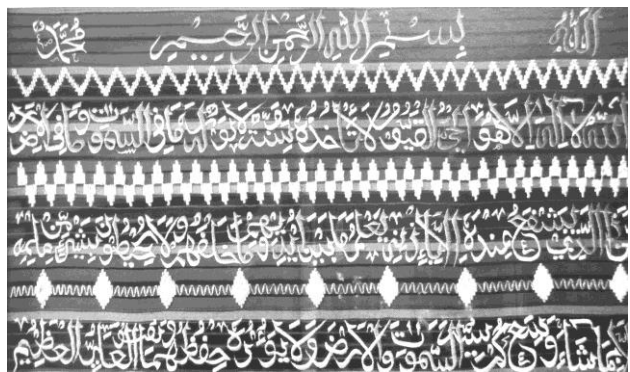 الله بِسْمِ اللهِ الرَّحْمٰنِ الرَّحِيْمِ مُحَمَّدٌ
الله لا إله إلا هو الحي القيوم لا تأخذه سنة ولا نوم له ما في السموت وما في الارض
من ذا الذي يشفع عنده إلا بإذنه يعلم ما بين أيديهم وما خلفهم ولا يحيطون بشيء من علمه
إلا بما شاء وسع كرسيه السموت والارض ولا يؤده حفظهما وهو العلي العظيم